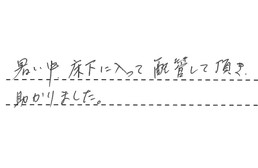 暑い中、床下に入って配管して頂き、
助かりました。